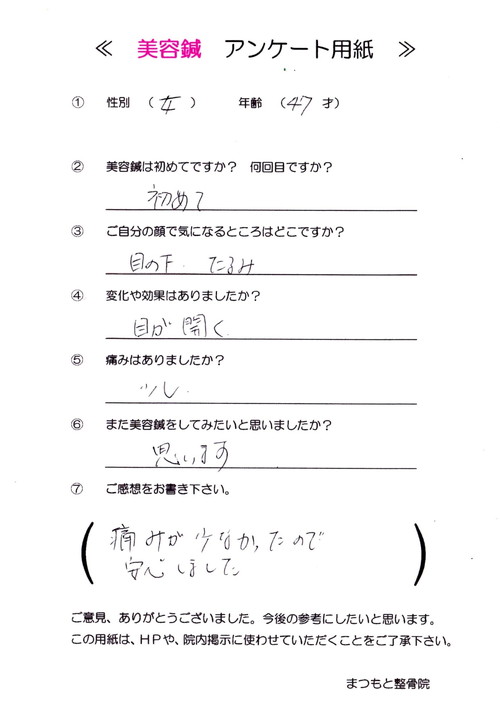 ≪ 美容鍼 アンケート用紙 ≫
① 性別 (女) 年齢 (47才)
② 美容鍼は初めてですか? 何回目ですか?
初めて
③ ご自分の顔で気になるところはどこですか?
目の下. たるみ
④ 変化や効果はありましたか?
目が開く.
⑤ 痛みはありましたか?
少し.
⑥ また美容鍼をしてみたいと思いましたか?
思います
⑦ ご感想をお書き下さい。
(痛みが少なかったので
安心しました)
ご意見、ありがとうございました。今後の参考にしたいと思います。
この用紙は、HPや、院内掲示に使わせていただくことをご了承下さい。
まつもと整骨院